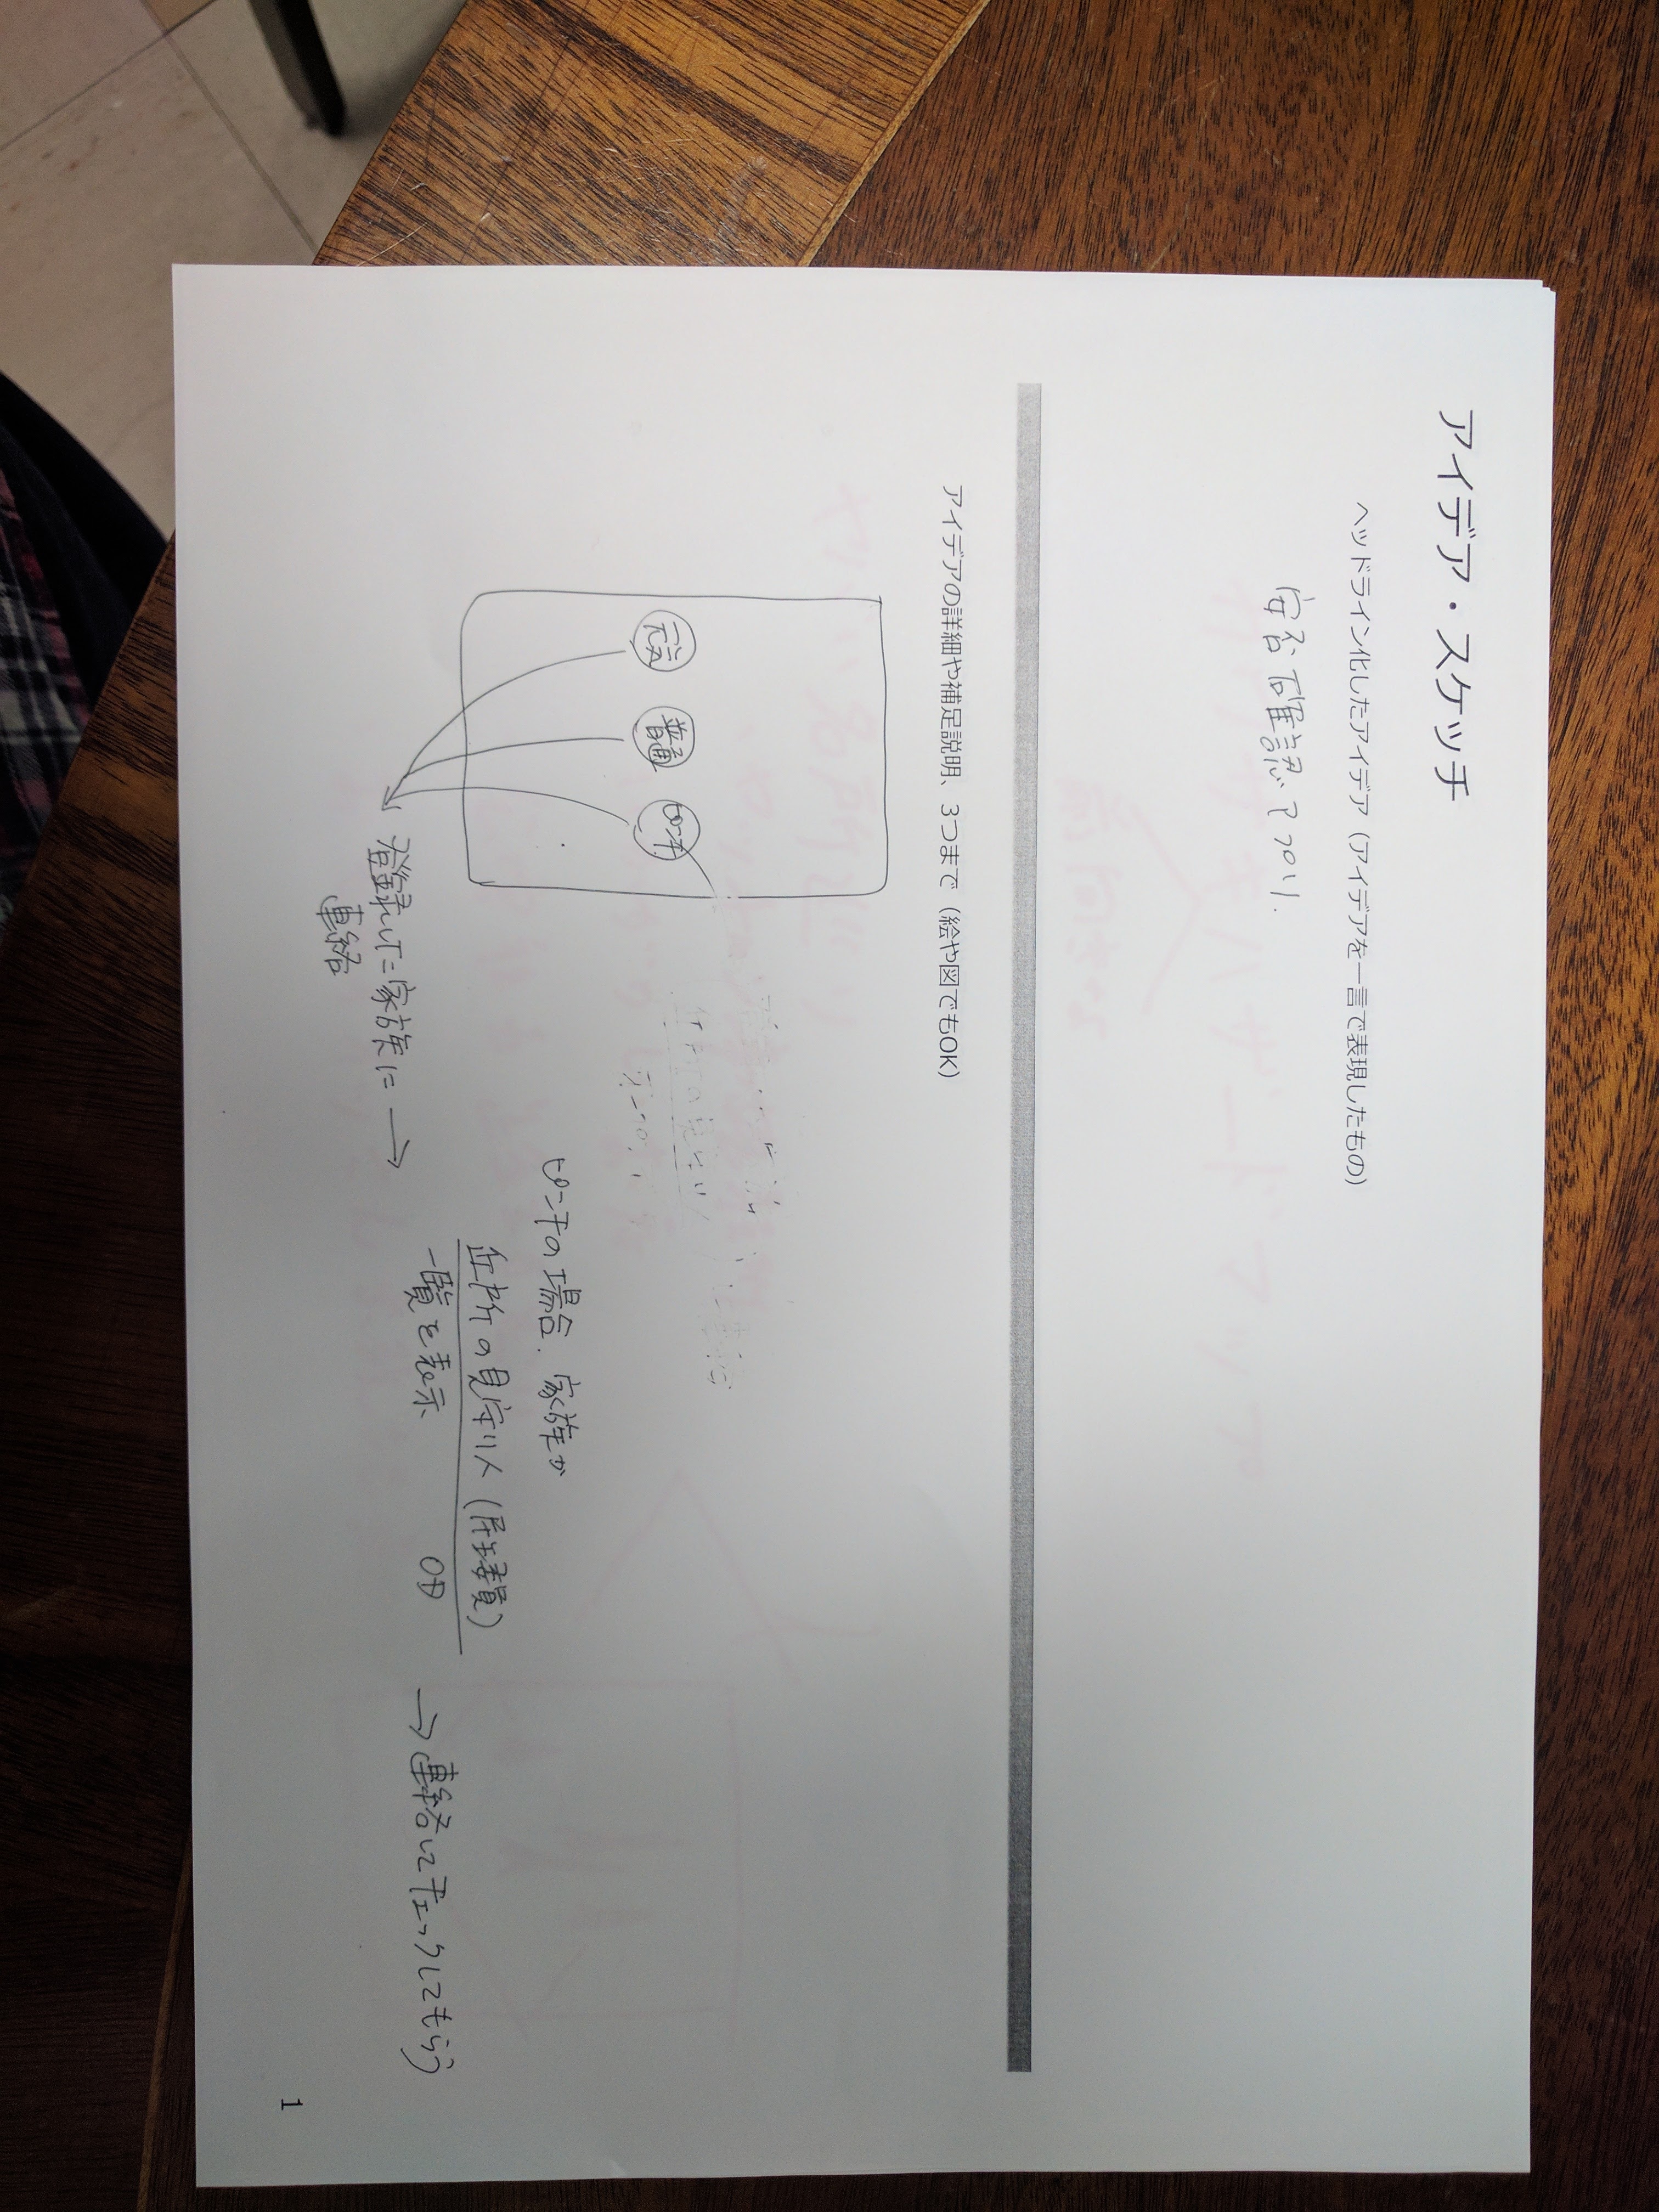 アイデア・スケッチ
ヘッドライン化したアイデア（アイデアを一言で表現したもの）
安否確認アプリ.
アイデアの詳細や補足説明、3つまで（絵や図でもOK）
元気
普通
ピンチ
登録した家族に →
連絡
ピンチの場合. 家族が
近所の見守り人（民生委員）
一覧を表示
→ 連絡してチェックしてもらう
1